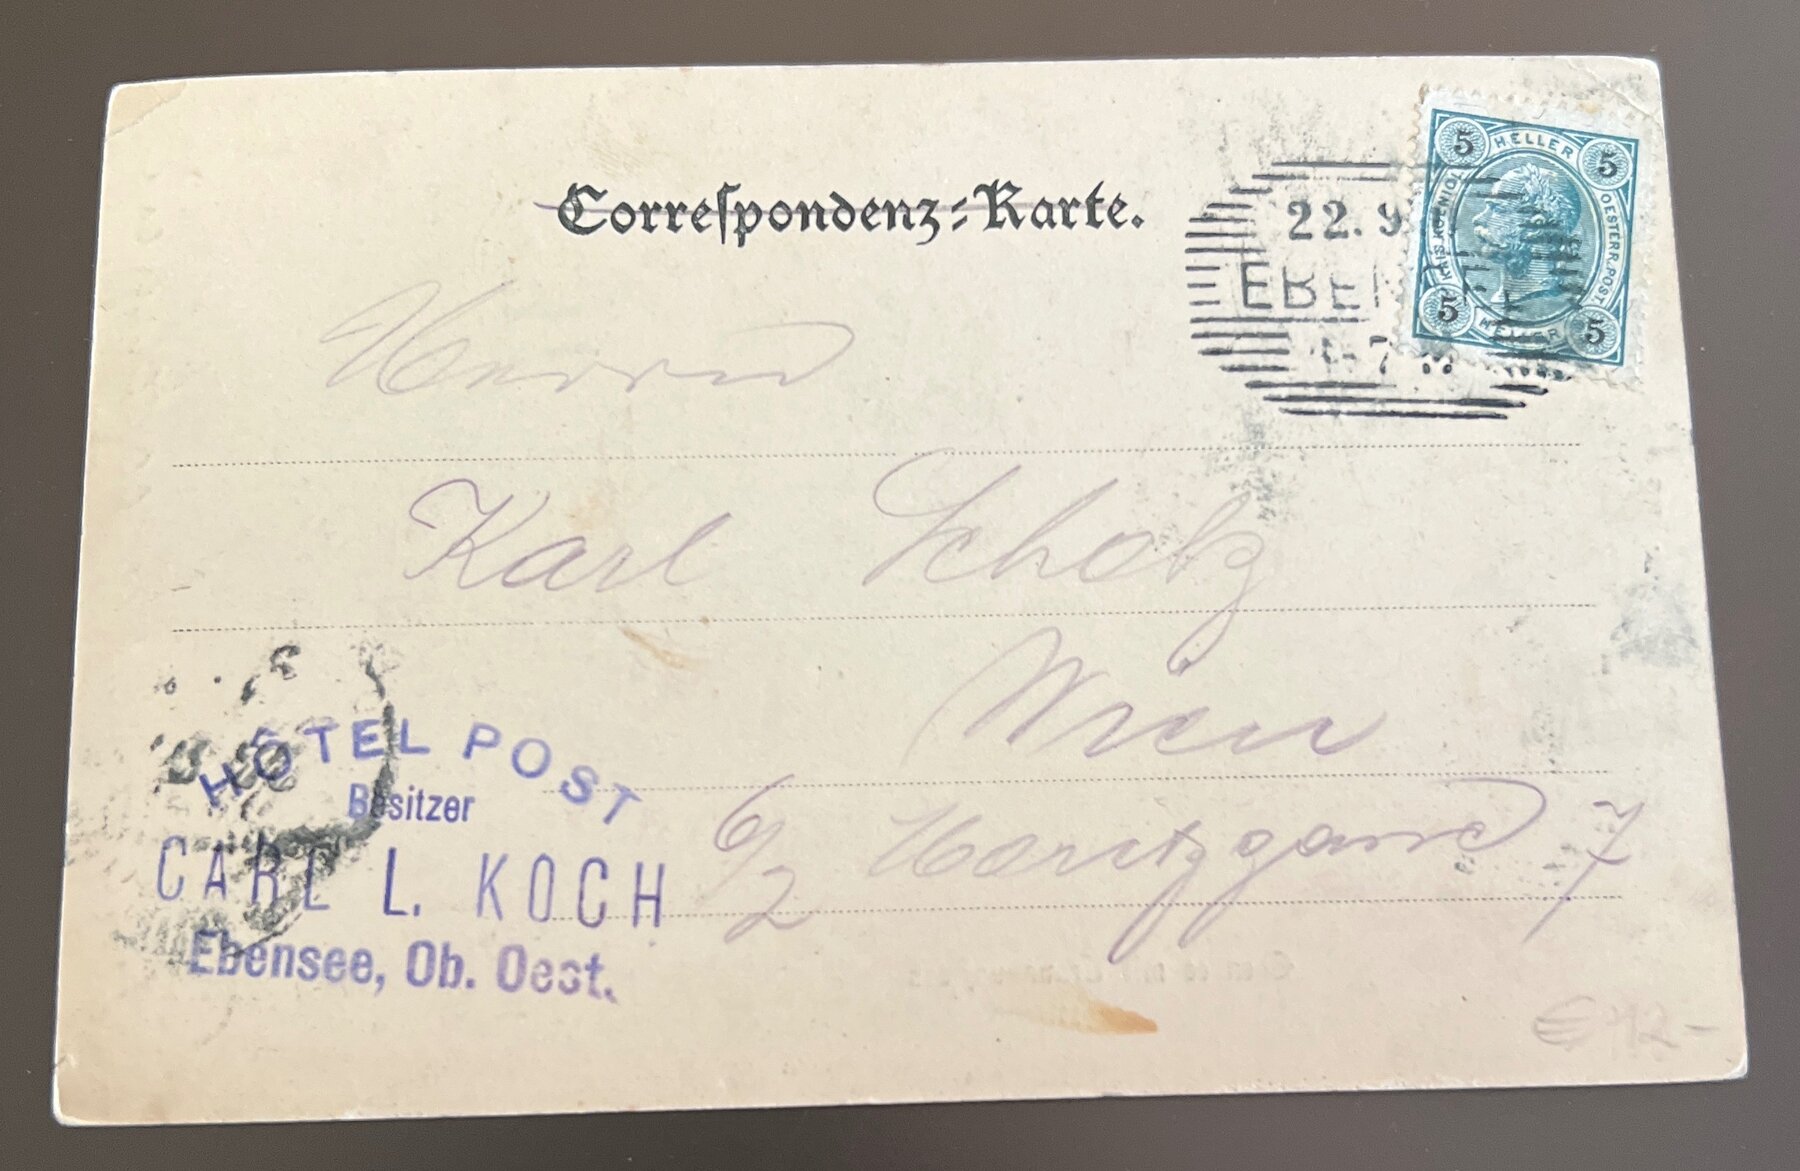 Correspondenz-Karte.
5 HELLER 5
KAIS. KOENIGL.
OESTERR. POST.
5 HELLER 5
22.9
EBEN
-7
Herrn
Karl Scholz
Wien
6/2 7
HÔTEL POST
Besitzer
CARL L. KOCH
Ebensee, Ob. Oest.
€ 12-